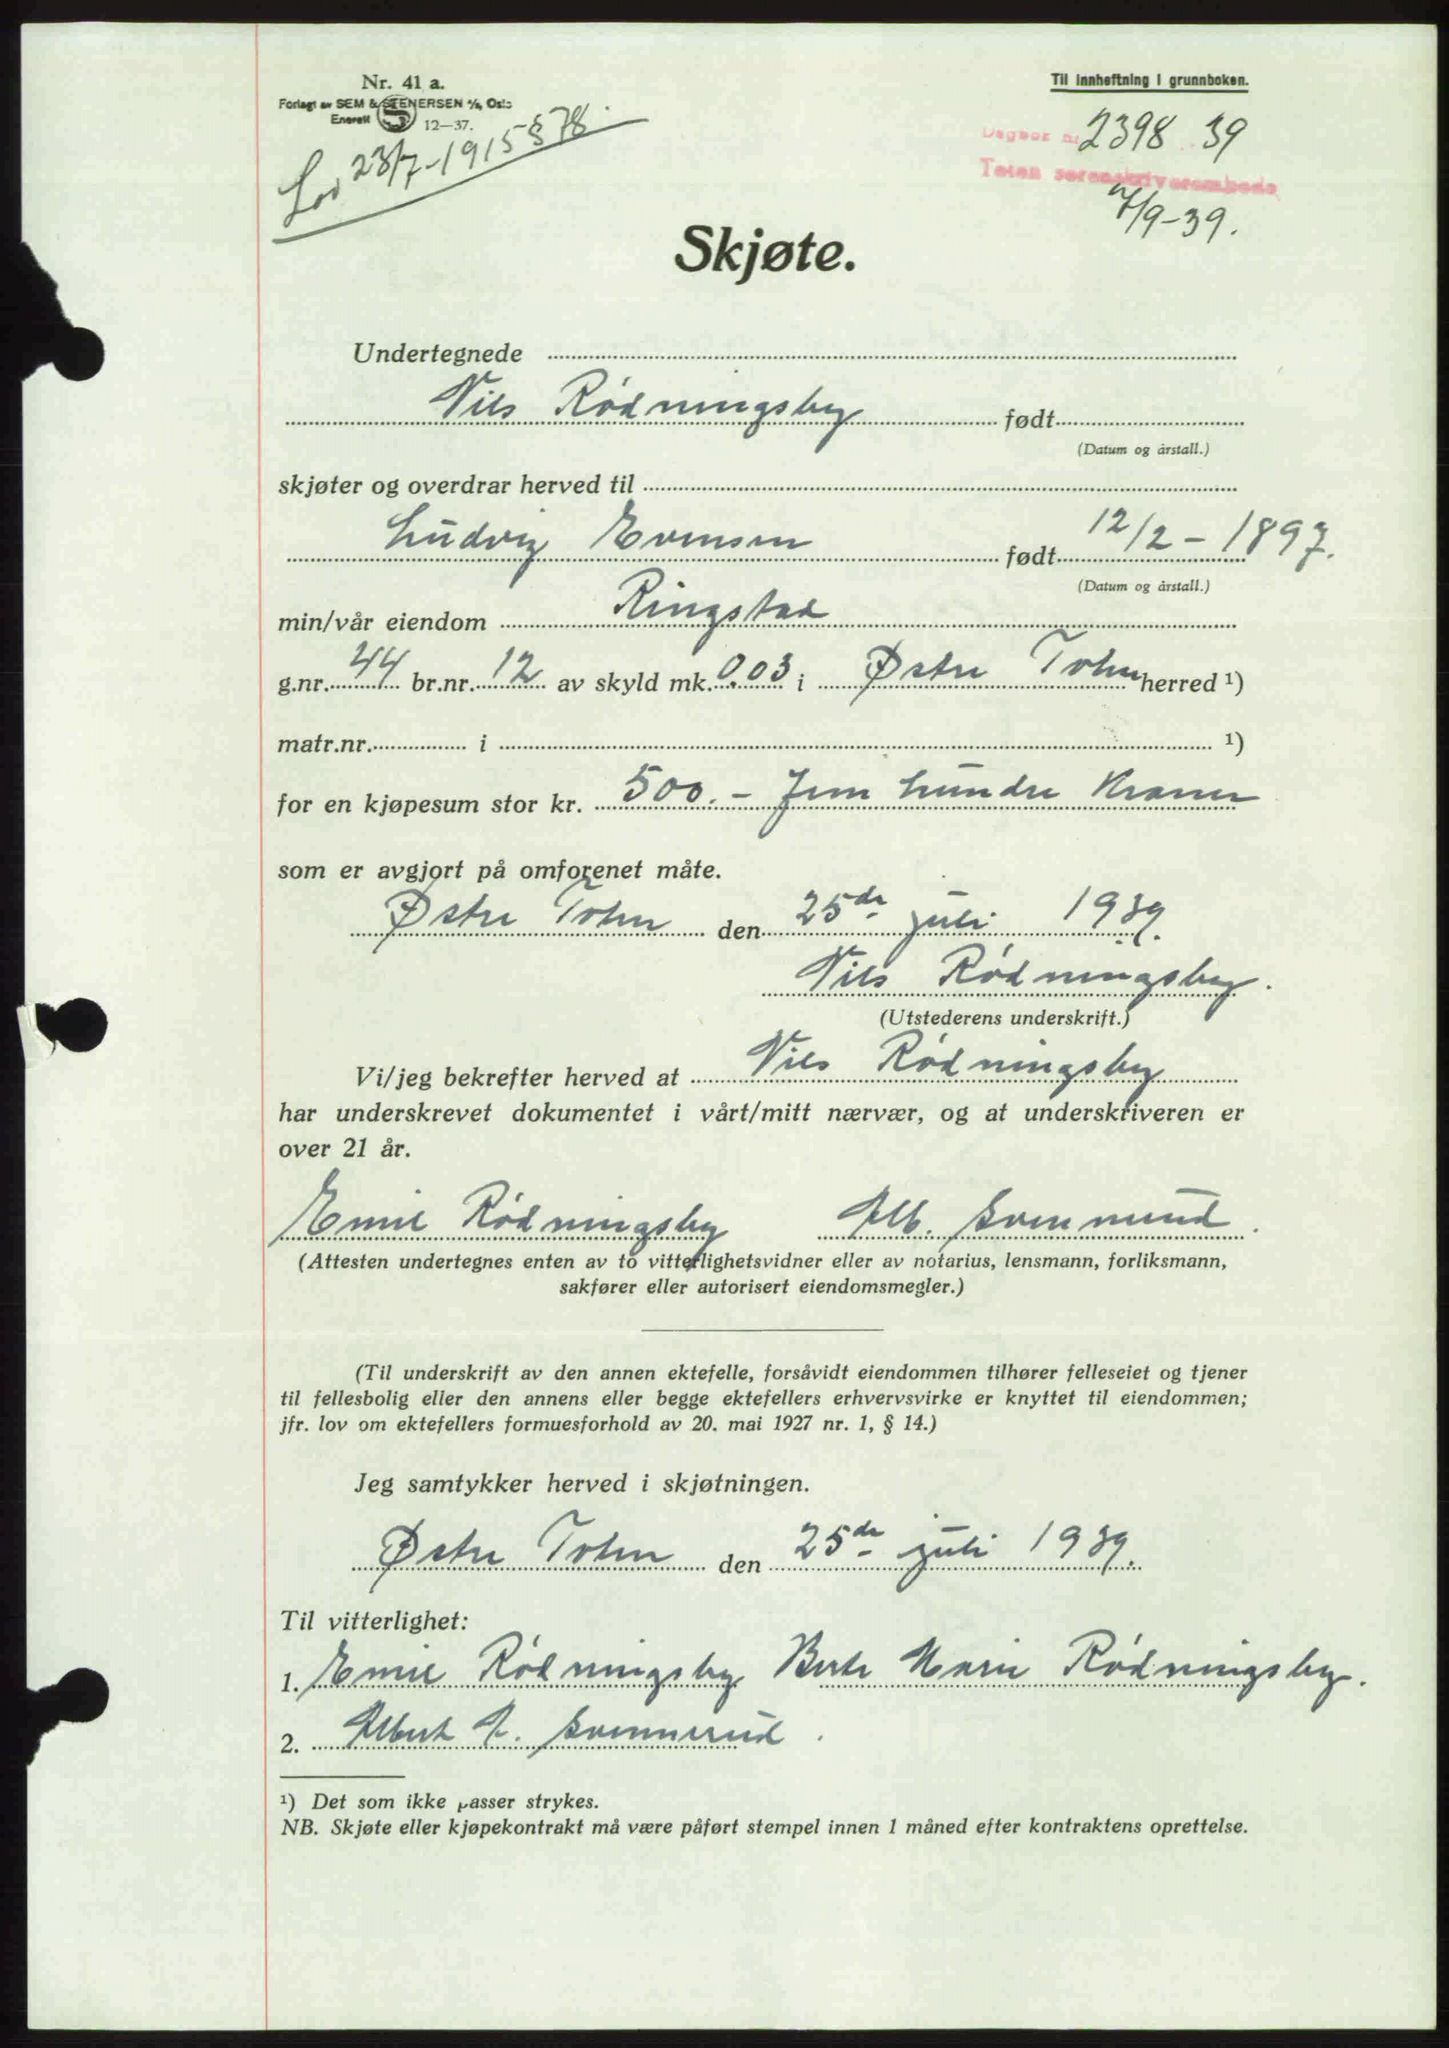 Nr. 41 a.
Forlagt av SEM & STENERSEN A/S, Oslo
Enerett S 12—37.
Lov 23/7-1915 § 78.
Til innheftning i grunnboken.
Dagbok nr. 2398 39
Toten sorenskriverembede
7/9-39.
Skjøte.
Undertegnede
Nils Rødningsby født
(Datum og årstall.)
skjøter og overdrar herved til
Ludvig Evensen født 12/2 - 1897.
(Datum og årstall.)
min/vår eiendom Ringstad
g.nr. 44 br.nr. 12 av skyld mk. 0.03 i Østre Toten herred ¹)
matr.nr. i ¹)
for en kjøpesum stor kr. 500.- Fem hundre Kroner
som er avgjort på omforenet måte.
Østre Toten den 25de juli 1939.
Nils Rødningsby.
(Utstederens underskrift.)
Vi/jeg bekrefter herved at Nils Rødningsby
har underskrevet dokumentet i vårt/mitt nærvær, og at underskriveren er
over 21 år.
Emil Rødningsby Alb. Svennerud.
(Attesten undertegnes enten av to vitterlighetsvidner eller av notarius, lensmann, forliksmann,
sakfører eller autorisert eiendomsmegler.)
(Til underskrift av den annen ektefelle, forsåvidt eiendommen tilhører felleseiet og tjener
til fellesbolig eller den annens eller begge ektefellers erhvervsvirke er knyttet til eiendommen;
jfr. lov om ektefellers formuesforhold av 20. mai 1927 nr. 1, § 14.)
Jeg samtykker herved i skjøtningen.
Østre Toten den 25de juli 1939.
Til vitterlighet:
1. Emil Rødningsby Berte Marie Rødningsby.
2. Albert A. Svennerud.
¹) Det som ikke passer strykes.
NB. Skjøte eller kjøpekontrakt må være påført stempel innen 1 måned efter kontraktens oprettelse.